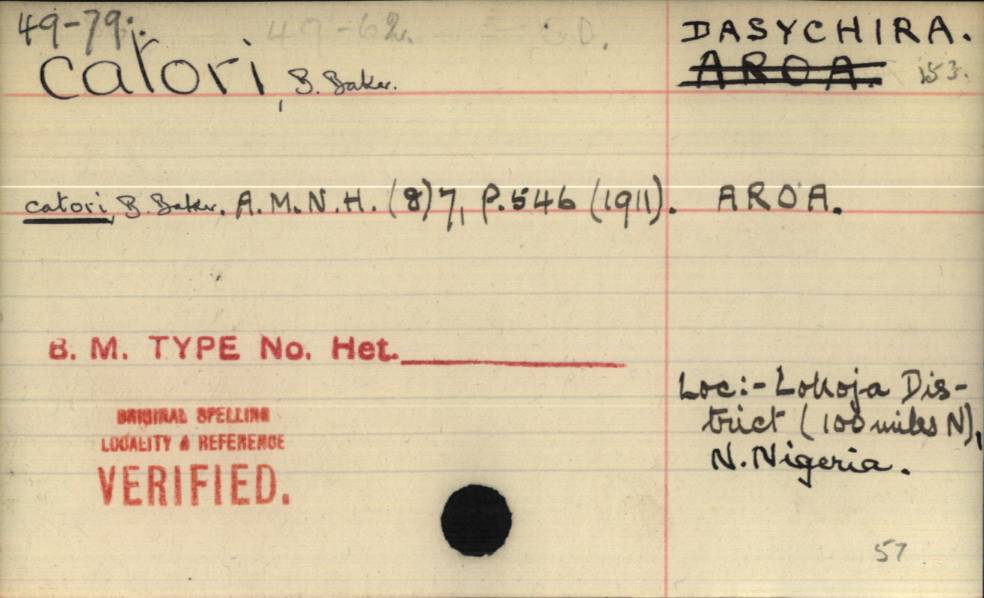 49-79. 49-62.
DASYCHIRA.
catori, B. Baker.
AROA. 153.
catori, B. Baker. A.M.N.H. (8) 7, P.546 (1911). AROA.
B. M. TYPE No. Het.
Loc:- Lokoja Dis-
trict (100 miles N),
N. Nigeria.
ORIGINAL SPELLING
LOCALITY & REFERENCE
VERIFIED.
57